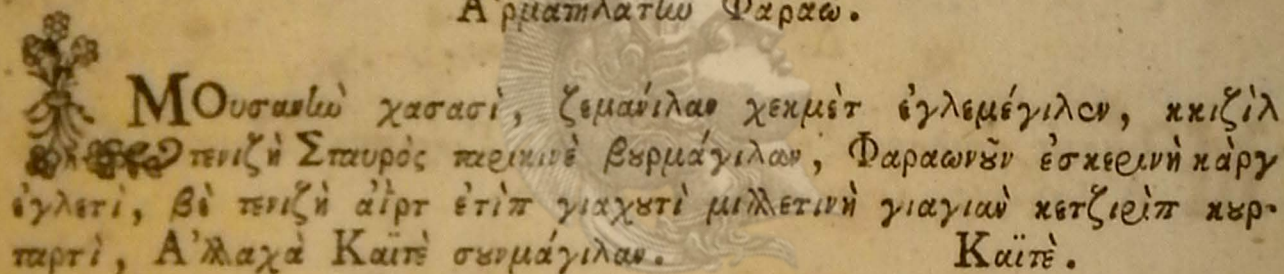 Ἁρματηλάτίω Φαραω.
Μουσανίὼ χασασὶ, ζεμανίλαν χεκμὲτ ἐγλεμέγιλεν, κκιζὶλ
τενιζὴ Σταυρὸς παρικινὲ βȣρμάγιλαν, Φαραωνȣ͂ν ἐσκερινὴ κὰργ
ἐγλετὶ, βὲ τενιζὴ ἀϊρτ ἐτὶπ γιαχȣτὶ μιλλετινὴ γιαγιαὺ κετζιρὶπ κȣρ-
ταρτὶ, Ἀλλαχὰ Καϊτὲ σȣνμάγιλαν. Καϊτὲ.